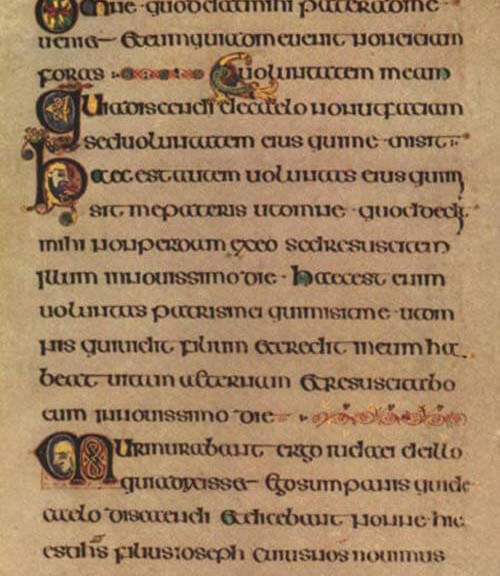 Omne quod dat mihi pater adme
ueniet Et eum qui adme uenit non eiciam
foras uoluntatem meam
Quia discendi decaelo nonut faciam
sed uoluntatem eius qui me misit
haec est autem uoluntas eius qui m
sit me patris ut omne quod dedit
mihi non perdam ex eo sed resuscitem
illum in nouissimo die haec est enim
uoluntas patris mei qui misit me ut om
nis qui uidit filium et credit in eum ha
beat uitam aeternam Et resuscitabo
eum in nouissimo die
Murmurabant ergo iudaei de illo
quia dixisset Ego sum panis qui de
caelo discendi et dicebant nonne hic
est ihs filius ioseph cuius nos nouimus